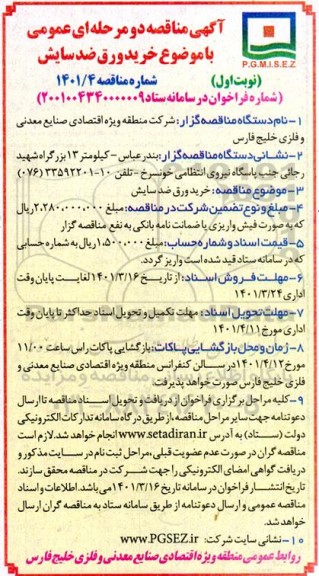 آگهی مناقصه دو مرحله ای عمومی
با موضوع خرید ورق ضد سایش
P.G.M.I.S.E.Z
(نوبت اول) شماره مناقصه ۱۴۰۱/۴
(شماره فراخوان در سامانه ستاد ۲۰۰۱۰۰۴۳۴۰۰۰۰۰۰۹)
۱- نام دستگاه مناقصه گزار: شرکت منطقه ویژه اقتصادی صنایع معدنی
و فلزی خلیج فارس
۲- نشانی دستگاه مناقصه گزار: بندرعباس - کیلومتر ۱۳ بزرگراه شهید
رجائی جنب پاسگاه نیروی انتظامی خونسرخ - تلفن ۱۰-۳۳۵۹۲۲۰۱ (۰۷۶)
۳- موضوع مناقصه: خرید ورق ضد سایش
۴- مبلغ و نوع تضمین شرکت در مناقصه: مبلغ ۲.۲۸۰.۰۰۰.۰۰۰ ریال
که به صورت فیش واریزی یا ضمانت نامه بانکی به نفع مناقصه گزار
۵- قیمت اسناد و شماره حساب: مبلغ ۱.۵۰۰.۰۰۰ ریال به شماره حسابی
که در سامانه ستاد قید شده است واریز گردد.
۶- مهلت فروش اسناد: از تاریخ ۱۴۰۱/۳/۱۶ لغایت پایان وقت
اداری ۱۴۰۱/۳/۲۴
۷- مهلت تحویل اسناد: مهلت تکمیل و تحویل اسناد حداکثر تا پایان وقت
اداری مورخ ۱۴۰۱/۴/۱۱
۸- زمان و محل بازگشایی پاکات: بازگشایی پاکات راس ساعت ۱۱/۰۰
مورخ ۱۴۰۱/۴/۱۲ در سالن کنفرانس منطقه ویژه اقتصادی صنایع معدنی و
فلزی خلیج فارس صورت خواهد پذیرفت.
۹- کلیه مراحل برگزاری فراخوان از دریافت و تحویل اسناد مناقصه تا ارسال
دعوتنامه جهت سایر مراحل مناقصه از طریق درگاه سامانه تدارکات الکترونیکی
دولت (ستاد) به آدرس www.setadiran.ir انجام خواهد شد. لازم است
مناقصه گران در صورت عدم عضویت قبلی، مراحل ثبت نام در سایت مذکور و
دریافت گواهی امضای الکترونیکی را جهت شرکت در مناقصه محقق سازند.
تاریخ انتشار فراخوان در سامانه تاریخ ۱۴۰۱/۳/۱۶ می باشد. اطلاعات و اسناد
مناقصه عمومی و ارسال دعوتنامه از طریق سامانه ستاد به مناقصه گران ارسال
خواهد شد.
۱۰- نشانی سایت شرکت: www.PGSEZ.ir
روابط عمومی منطقه ویژه اقتصادی صنایع معدنی و فلزی خلیج فارس